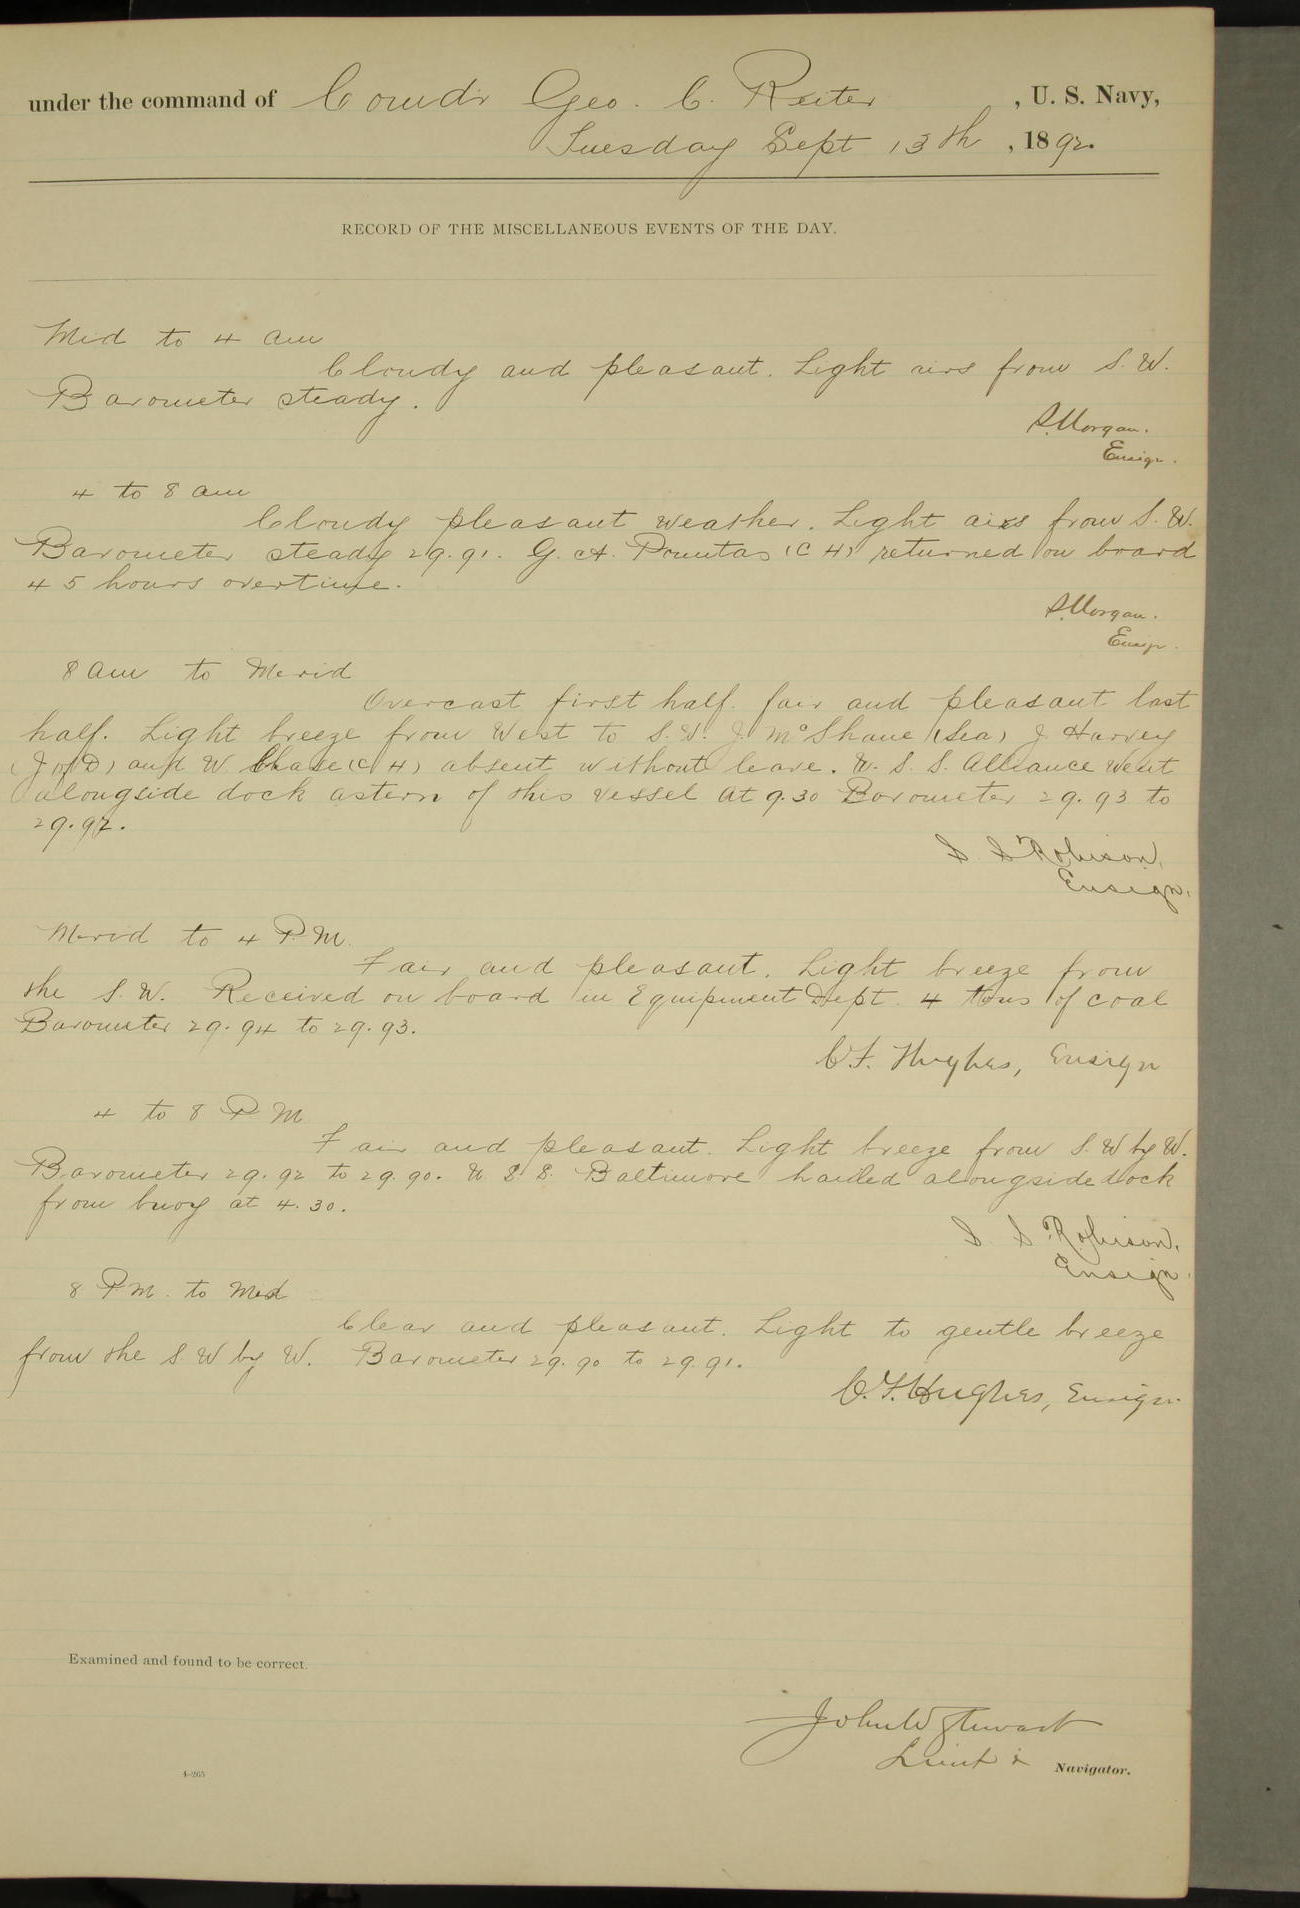 under the command of Comdr Geo. C. Reiter , U. S. Navy,
Tuesday Sept 13th , 1892.
RECORD OF THE MISCELLANEOUS EVENTS OF THE DAY.
Mid to 4 am
Cloudy and pleasant. Light airs from S. W.
Barometer steady.
S. Morgan.
Ensign.
4 to 8 am
Cloudy pleasant weather. Light airs from S. W.
Barometer steady 29.91. G. A. (C H) returned on board
45 hours overtime.
S. Morgan.
Ensign.
8 am to Merid
Overcast first half. fair and pleasant last
half. Light breeze from West to S. W. J. McShane (Sea) J. Harvey
(J of D) and W. Chase (C H) absent without leave. U. S. S. Alliance went
alongside dock astern of this vessel at 9.30 Barometer 29.93 to
29.92.
S. S. Robison,
Ensign.
Merid to 4 P. M.
Fair and pleasant. Light breeze from
the S. W. Received on board in Equipment Dept. 4 tons of coal
Barometer 29.94 to 29.93.
C. F. Hughes, Ensign
4 to 8 P M
Fair and pleasant. Light breeze from S. W by W.
Barometer 29.92 to 29.90. U. S. S. Baltimore hauled alongside dock
from buoy at 4.30.
S. S. Robison,
Ensign.
8 P M. to Mid
Clear and pleasant. Light to gentle breeze
from the S. W by W. Barometer 29.90 to 29.91.
C. F. Hughes, Ensign.
Examined and found to be correct.
John W Stewart
Lieut & Navigator.
4-265